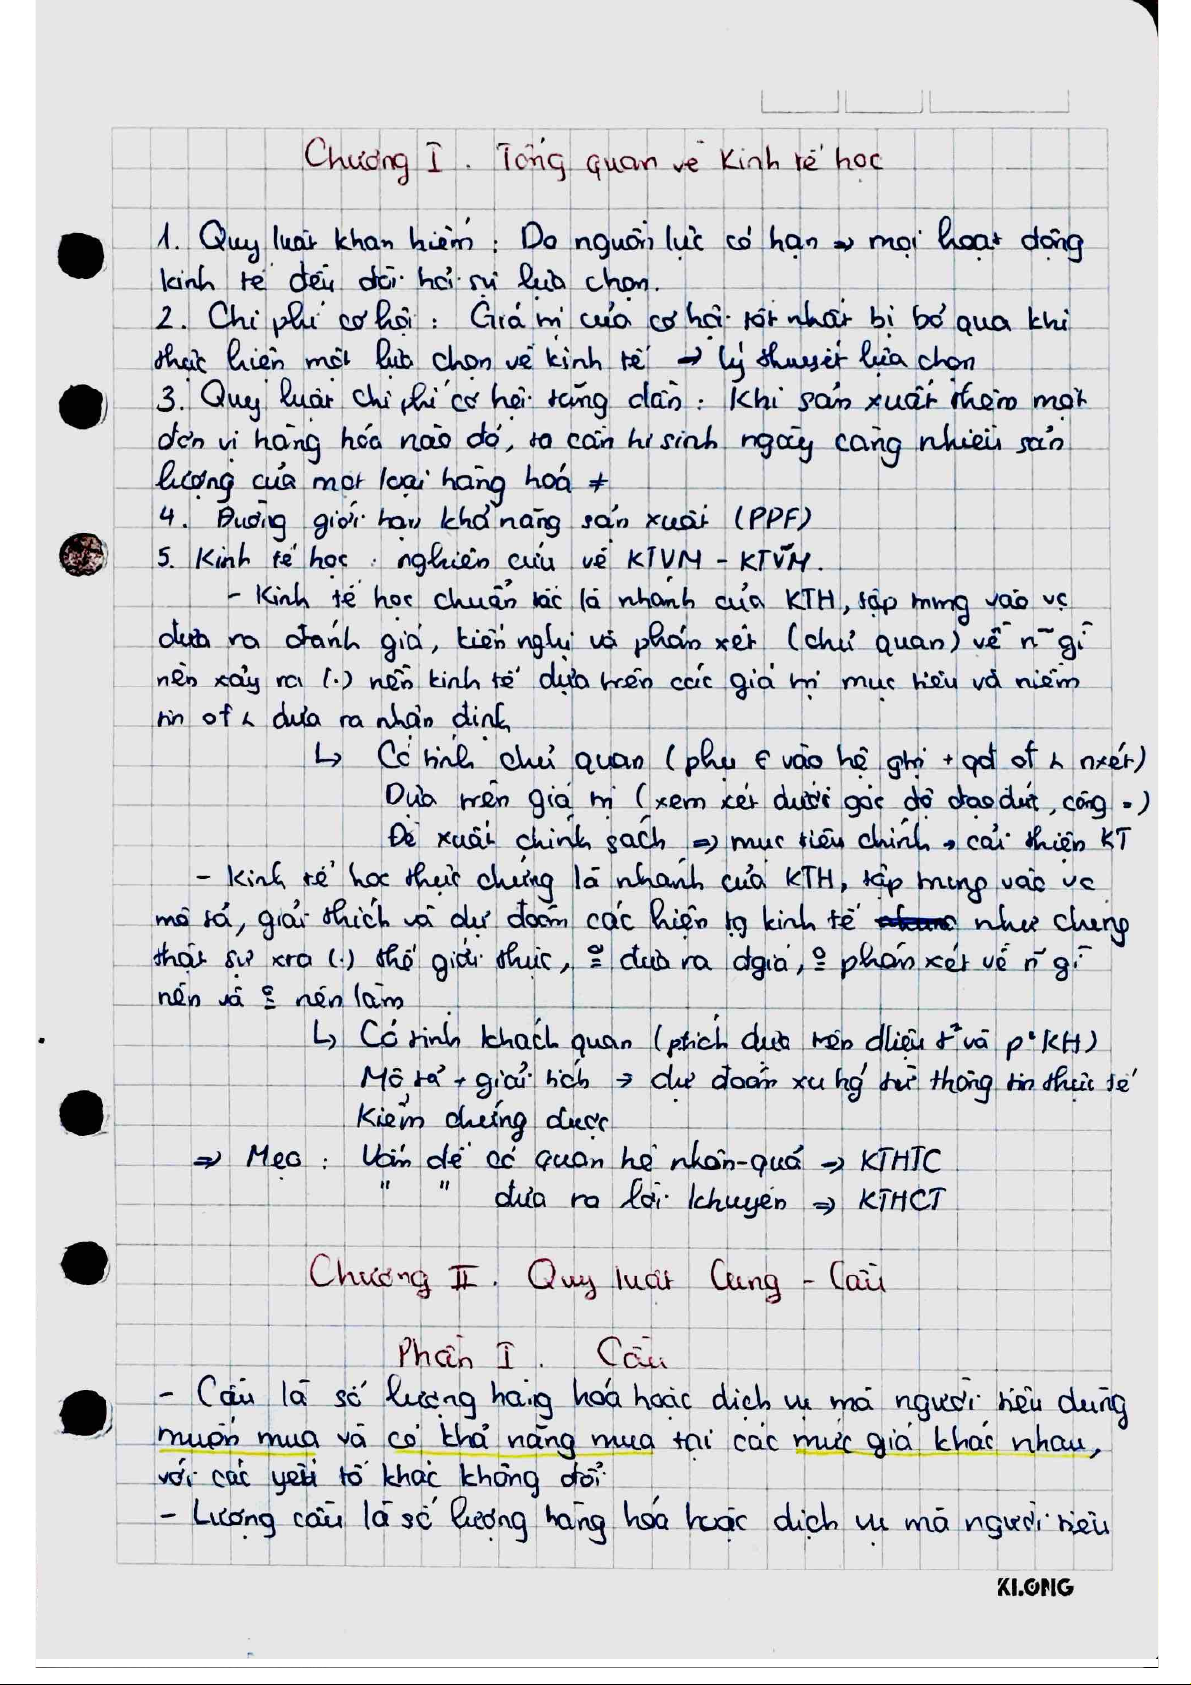 Chương I. Tổng quan về Kinh tế học
1. Quy luật khan hiếm : Do nguồn lực có hạn => mọi hoạt động
kinh tế đều đòi hỏi sự lựa chọn.
2. Chi phí cơ hội : Giá trị của cơ hội tốt nhất bị bỏ qua khi
thực hiện một lựa chọn về kinh tế → lý thuyết lựa chọn
3. Quy luật chi phí cơ hội tăng dần : Khi sản xuất thêm một
đơn vị hàng hóa nào đó, ta cần hi sinh ngày càng nhiều sản
lượng của một loại hàng hoá ≠
4. Đường giới hạn khả năng sản xuất (PPF)
5. Kinh tế học : nghiên cứu về KTVM - KTVĨM.
- Kinh tế học chuẩn tắc là nhánh của KTH, tập trung vào vc
đưa ra đánh giá, kiến nghị và phán xét (chủ quan) về n~ gì
nên xảy ra (.) nền kinh tế dựa trên các giá trị mục tiêu và niềm
tin of đưa ra nhận định
↳ Có tính chủ quan (phụ ∈ vào hệ gtrị + qđ of nxét)
Dựa trên giá trị (xem xét dưới góc độ đạo đức, công =)
Đề xuất chính sách => mục tiêu chính → cải thiện KT
- Kinh tế học thực chứng là nhánh của KTH, tập trung vào vc
mô tả, giải thích và dự đoán các hiện tg kinh tế như chúng
thật sự xra (.) thế giới thực, đưa ra đgiá, phán xét về n~ gì
nên và nên làm
↳ Có tính khách quan (ptích dựa trên dliệu t² và p² KH)
Mô tả + giải tích → dự đoán xu hg từ thông tin thực tế
Kiểm chứng được
=> Mẹo : Vấn đề có quan hệ nhân-quả => KTHTC
" " đưa ra lời khuyên => KTHCT
Chương II. Quy luật Cung - Cầu
Phần I. Cầu
- Cầu là số lượng hàng hoá hoặc dịch vụ mà người tiêu dùng
muốn mua và có khả năng mua tại các mức giá khác nhau,
với các yếu tố khác không đổi
- Lượng cầu là số lượng hàng hóa hoặc dịch vụ mà người tiêu
KLONG